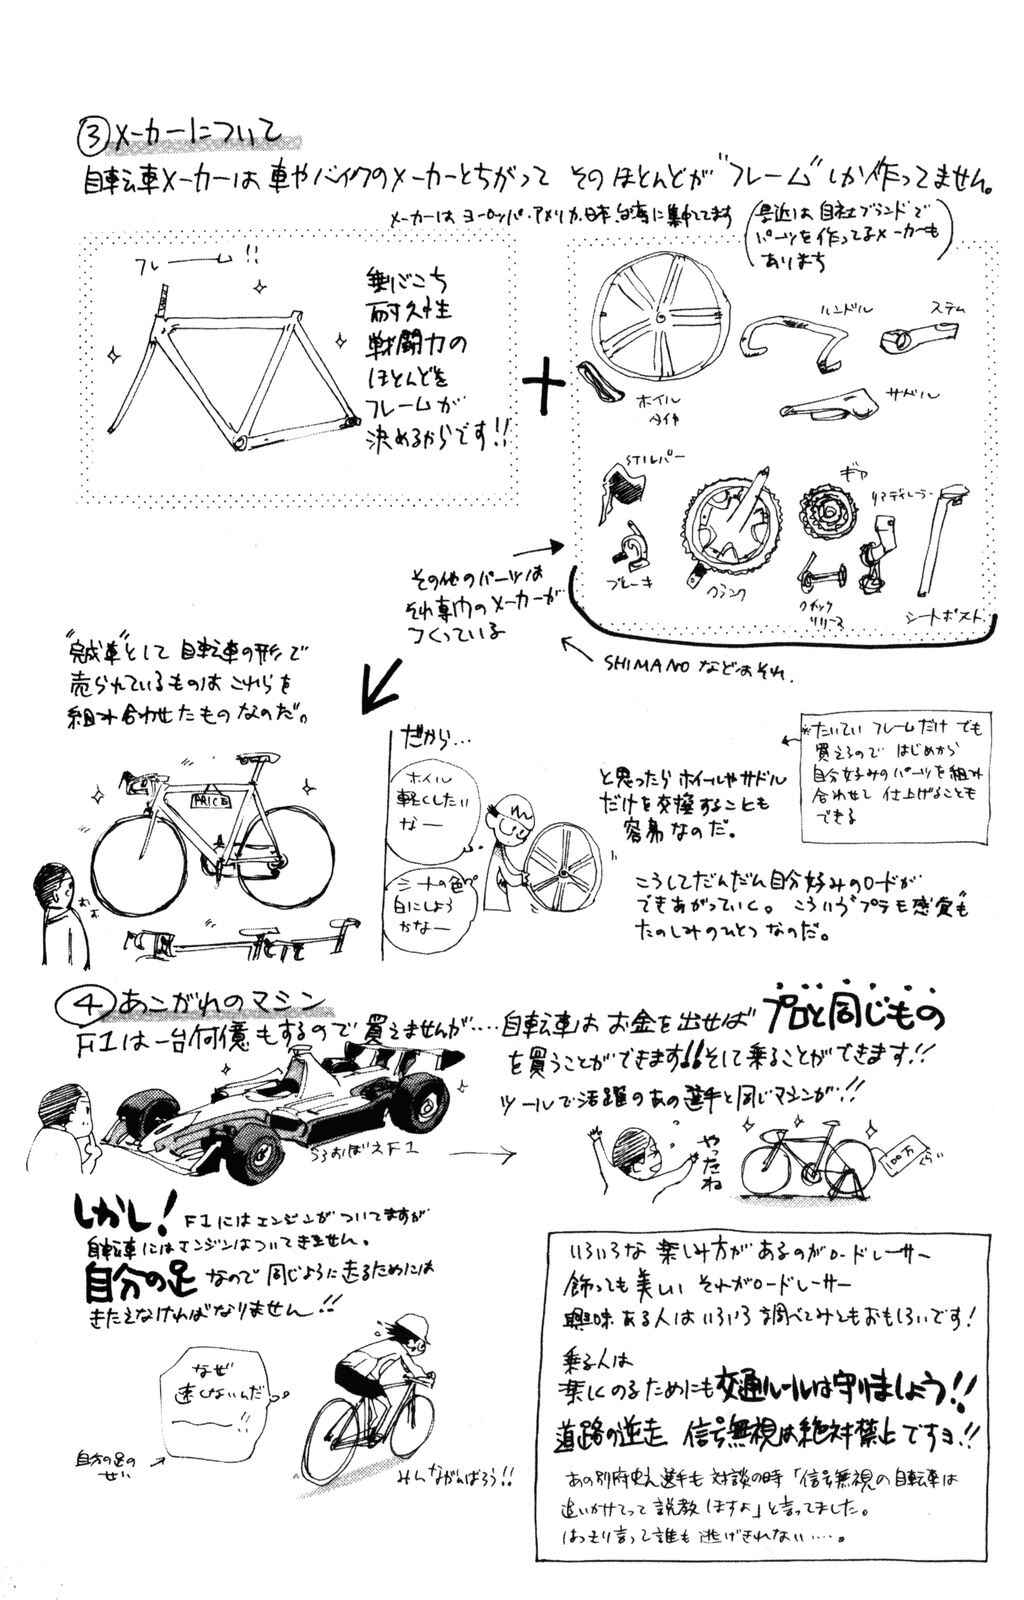 ③メーカーについて
自転車メーカーは車やバイクのメーカーとちがって そのほとんどが"フレーム"しか作ってません。
メーカーはヨーロッパ・アメリカ・日本・台湾に集中してます
(最近は自社ブランドで
パーツを作ってるメーカーも
あります)
フレーーム!!
乗りごこち
耐久性
戦闘力の
ほとんどを
フレームが
決めるからです!!
+
ホイル
タイヤ
ハンドル
ステム
サドル
STIレバー
ブレーキ
クランク
ギア
リアディレーラー
クイック
リリース
シートポスト
その他のパーツは
それ専門のメーカーが
つくっている
SHIMANOなどはそれ.
"完成車"として自転車の形で
売られているものはこれらを
組み合わせたものなのだ。
PRICE
だから…
ホイル
軽くしたい
なー
シートの色
白にしよう
かなー
と思ったらホイールやサドル
だけを交換することも
容易なのだ。
※たいていフレームだけでも
買えるのではじめから
自分好みのパーツを組み
合わせて仕上げることも
できる
こうしてだんだん自分好みのロードが
できあがっていく。こういう"プラモ感覚"も
たのしみのひとつなのだ。
④あこがれのマシン
F1は一台何億もするので買えませんが…‥自転車はお金を出せばプロと同じもの
を買うことができます!!そして乗ることができます!!
ツールで活躍のあの選手と同じマシンが!!
うろおぼえF1
やったね
100万
くらい
しかし!F1にはエンジンがついてますが
自転車にはエンジンはついてきません。
自分の足なので同じように走るためには
きたえなければなりません!!
なぜ
速くないんだ
ーー!!
自分の足の
せい
みんながんばろう!!
いろいろな楽しみ方があるのがロードレーサー
飾っても美しいそれがロードレーサー
興味ある人はいろいろ調べてみるともおもしろいです!
乗る人は
楽しくのるためにも交通ルールは守りましょう!!
道路の逆走 信号無視は絶対禁止ですョ!!
あの別府史之選手も対談の時「信号無視の自転車は
追いかけてって説教しますよ」と言ってました。
はっきり言って誰も逃げきれない…‥。